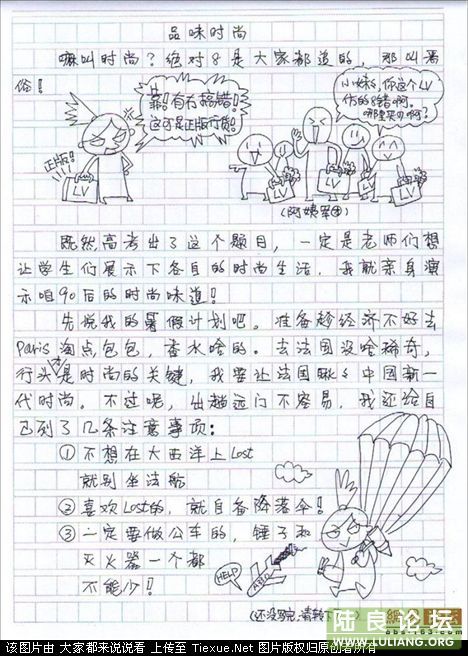 品味时尚
嘛叫时尚?绝对8是大家都追的,那叫恶
俗!
靠!有冇搞错!
这可是正版行货!
小妹々你这个LV
仿的8错啊。
哪里买D啊?
正版!
LV
LV
LV
LV
(阿姨军团)
既然高考出了这个题目,一定是老师们想
让学生们展示下各自的时尚生活,我就亲身演
示咱90后的时尚味道!
先说我的暑假计划吧。准备趁经济不好去
Paris淘点包包,香水啥的。去法国没啥稀奇,
行头才是时尚的关键,我要让法国瞅々中国新一
代时尚。不过呢,出趟远门不容易,我还给自
己列了几条注意事项:
①不想在大西洋上Lost
就别坐法航
②喜欢Lost的,就自备降落伞!
③一定要做公车的,锤子和
灭火器一个都
不能少!
HELP
(还没写完,请转下
陆良论坛
WWW.LULIANG.ORG
该图片由 大家都来说说看 上传至 Tiexue.Net 图片版权归原创者所有